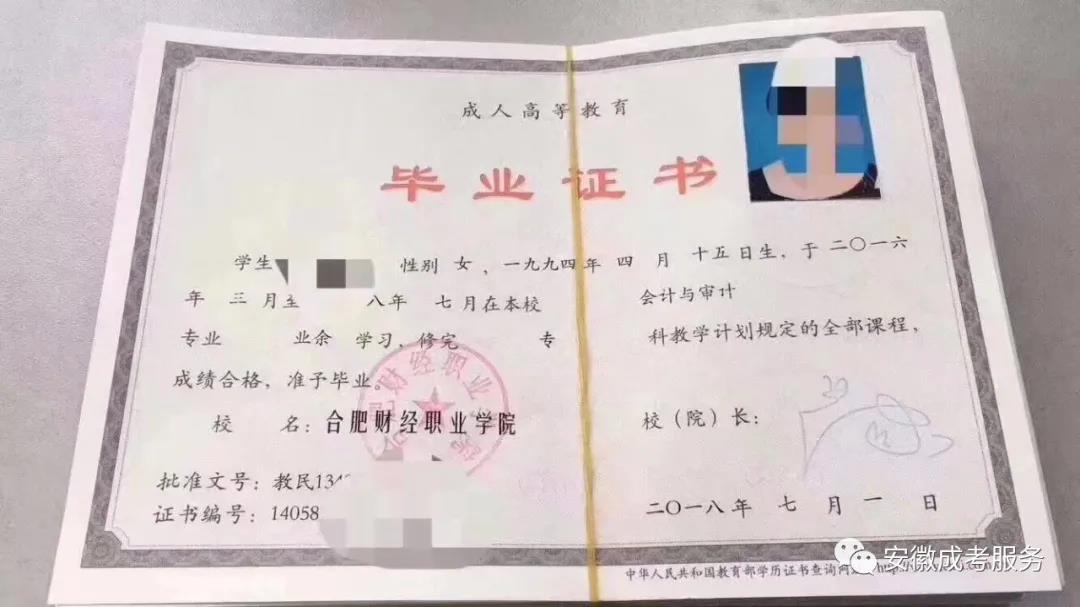 成人高等教育
毕业证书
学生 性别 女 ，一九九四年 四 月 十五日生，于 二〇一六
年 三 月至 八年 七 月在本校 会计与审计
专业 业余 学习，修完 专 科教学计划规定的全部课程，
成绩合格，准予毕业。
财经职业
校 名：合肥财经职业学院 校（院）长：
批准文号：教民134
证书编号：14058 二〇一八年 七 月 一 日
中华人民共和国教育部学历证书查询网
安徽成考服务